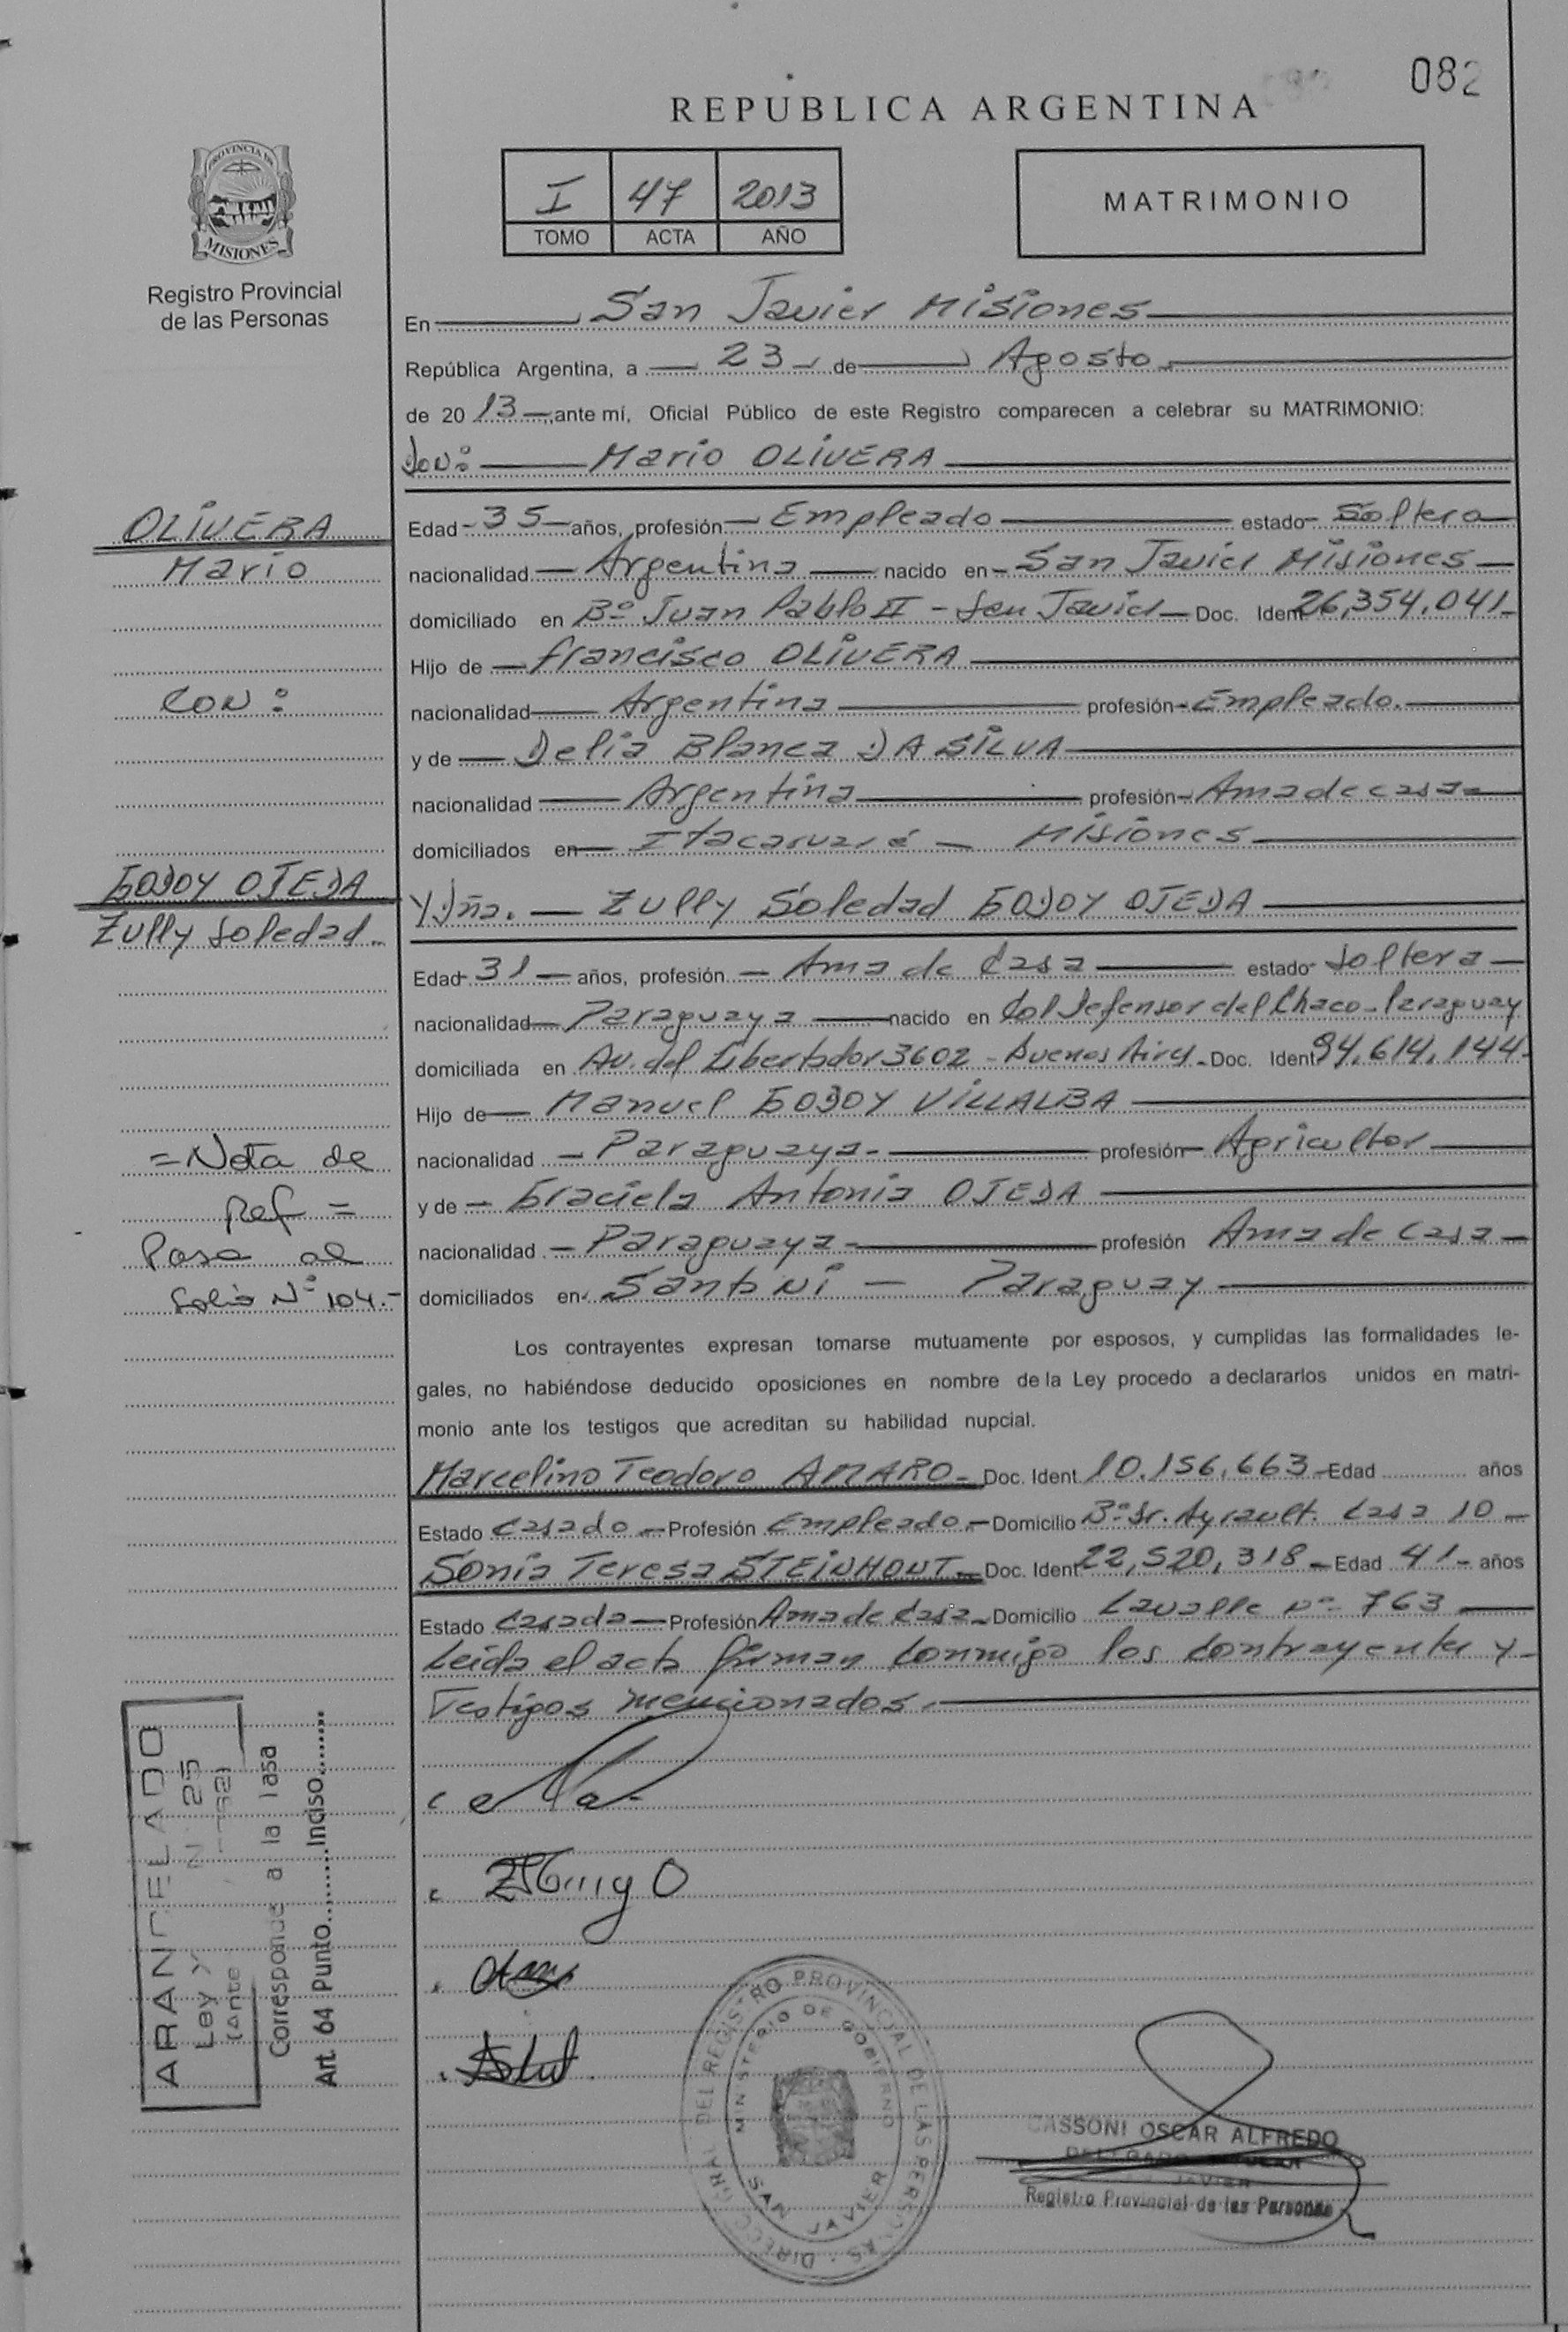 082
REPUBLICA ARGENTINA
I 47 2013
TOMO ACTA AÑO
MATRIMONIO
PROVINCIA DE
MISIONES
Registro Provincial
de las Personas
En San Javier Misiones
República Argentina, a 23 de Agosto
de 20 13 ante mí, Oficial Público de este Registro comparecen a celebrar su MATRIMONIO:
Don: Mario OLIVERA
OLIVERA
Mario
CON:
Edad 35 años, profesión Empleado estado Soltero
nacionalidad Argentina nacido en San Javier Misiones
domiciliado en Bº Juan Pablo II - San Javier Doc. Ident 26,354,041
Hijo de Francisco OLIVERA
nacionalidad Argentina profesión Empleado.
y de Delia Blanca DA SILVA
nacionalidad Argentina profesión Ama de casa
domiciliados en Itacaruaré - Misiones
GODOY OJEDA
Zully Soledad
Y Dña. Zully Soledad GODOY OJEDA
Edad 31 años, profesión Ama de Casa estado Soltera
nacionalidad Paraguaya nacido en Col Defensor del Chaco - Paraguay
domiciliada en Av. del Libertador 3602 - Buenos Aires Doc. Ident 94,614,144
Hijo de Manuel GODOY VILLALBA
nacionalidad Paraguaya profesión Agricultor
y de Graciela Antonia OJEDA
nacionalidad Paraguaya profesión Ama de Casa
domiciliados en Santo Ni - Paraguay
= Nota de
Ref =
Pasa al
folio Nº 104.-
Los contrayentes expresan tomarse mutuamente por esposos, y cumplidas las formalidades le-
gales, no habiéndose deducido oposiciones en nombre de la Ley procedo a declararlos unidos en matri-
monio ante los testigos que acreditan su habilidad nupcial.
Marcelino Teodoro AMARO Doc. Ident 10.156,663 Edad años
Estado Casado Profesión Empleado Domicilio Bº Sr. Ayrault. Casa 10
Sonia Teresa STEINHONT Doc. Ident 22,520,318 Edad 41 años
Estado Casada Profesión Ama de Casa Domicilio Lavalle nº 763
Leida el acta firman conmigo los contrayentes y
Testigos mencionados.
ARANCELADO
Ley Nº 25
(Ante
Corresponde a la Tasa
Art. 64 Punto..........Inciso........
DIRECC. GRAL. DEL REGISTRO PROVINCIAL DE LAS PERSONAS
MINISTERIO DE GOBIERNO
SAN JAVIER
CASSONI OSCAR ALFREDO
DELEGADO TITULAR
JAVIER
Registro Provincial de las Personas